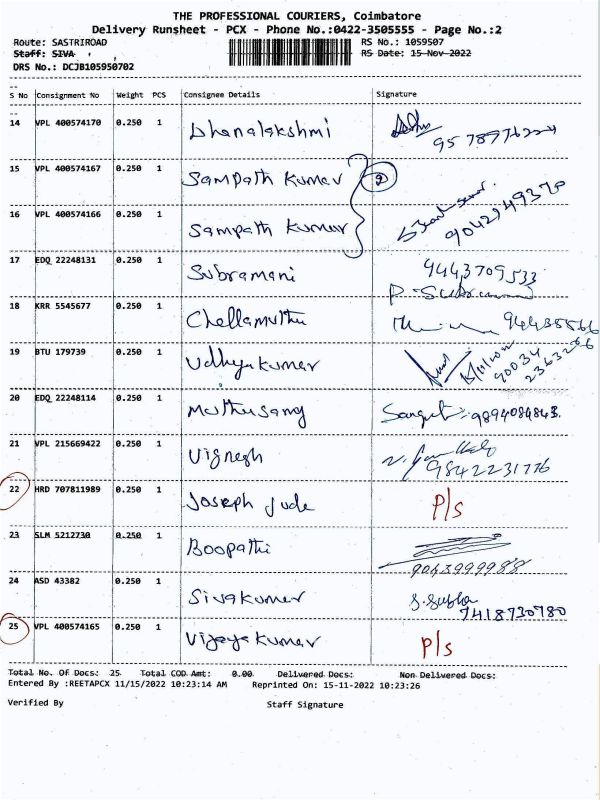 THE PROFESSIONAL COURIERS, Coimbatore
Delivery Runsheet - PCX - Phone No.:0422-3505555 - Page No.:2
Route: SASTRIROAD RS No.: 1059507
Staff: SIVA RS Date: 15-Nov-2022
DRS No.: DCJB105950702
S No Consignment No Weight PCS Consignee Details Signature
14 VPL 400574170 0.250 1 Dhanalakshmi
15 VPL 400574167 0.250 1 Sampath Kumar 2
16 VPL 400574166 0.250 1 Sampath Kumar 9042749370
17 EDQ 22248131 0.250 1 Subramani 9443709533
18 KRR 5545677 0.250 1 Chellamuthu
19 BTU 179739 0.250 1 Udhyakumar 90034 2363266
20 EDQ 22248114 0.250 1 Muthusamy 9894084843.
21 VPL 215669422 0.250 1 Vignesh 9842231776
22 HRD 707811989 0.250 1 Joseph Jude P/s
23 SLM 5212730 0.250 1 Boopathi 9043999988
24 ASD 43382 0.250 1 Sivakumar S. Subha 7418730780
25 VPL 400574165 0.250 1 Vijayakumar P/s
Total No. Of Docs: 25 Total COD Amt: 0.00 Delivered Docs: Non Delivered Docs:
Entered By :REETAPCX 11/15/2022 10:23:14 AM Reprinted On: 15-11-2022 10:23:26
Verified By Staff Signature